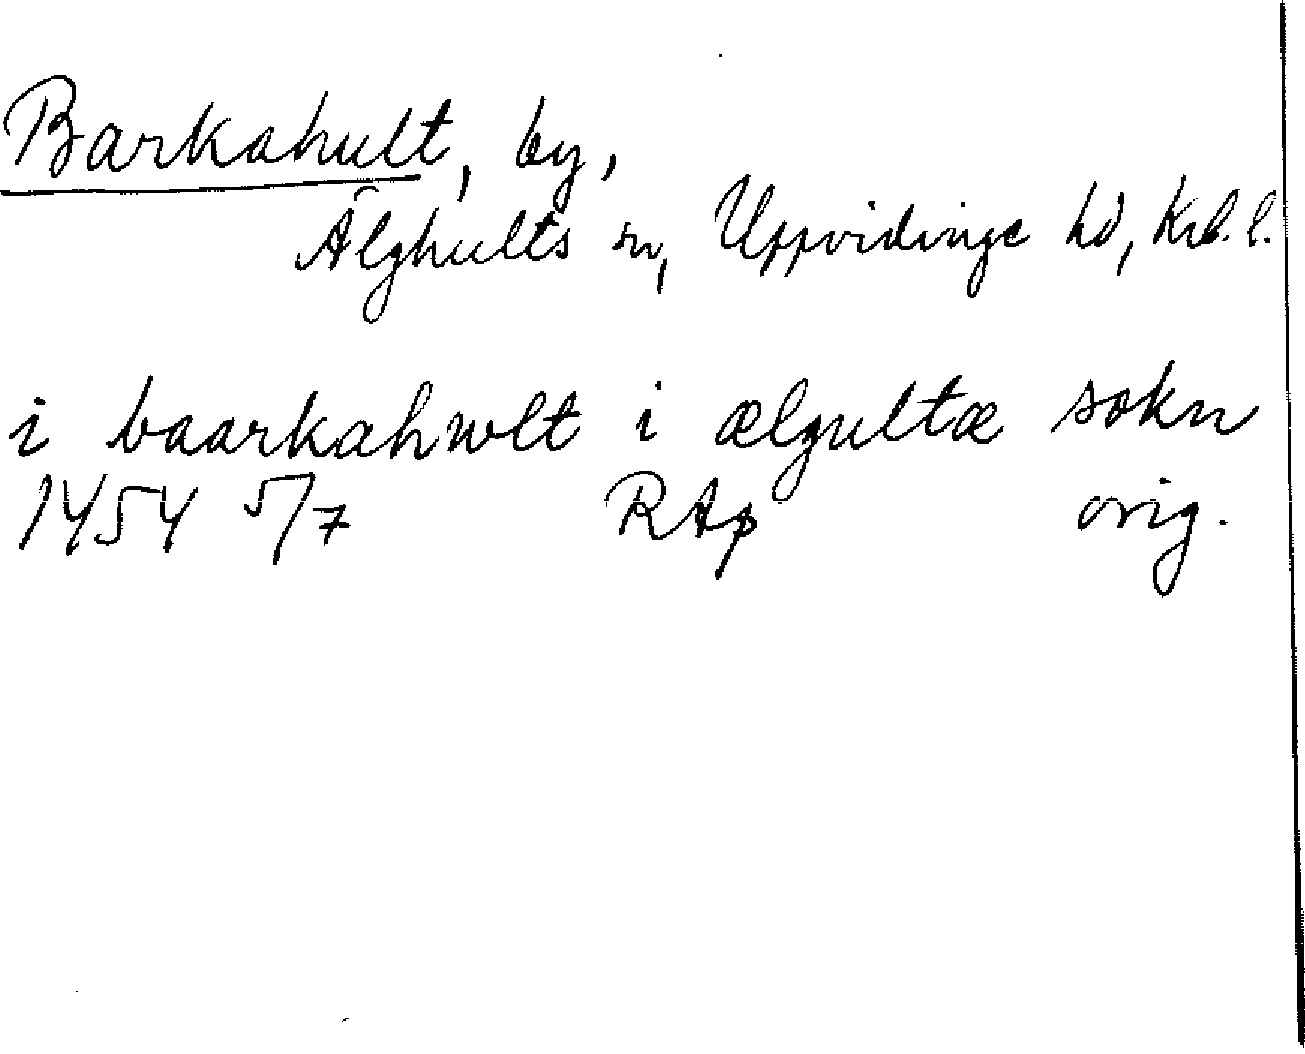 Barkahult, by,
Älghults sn, Uppvidinge hd, Krb. l.
i baarkahwlt i ælgultæ sokn
1454 5/7 RAp orig.